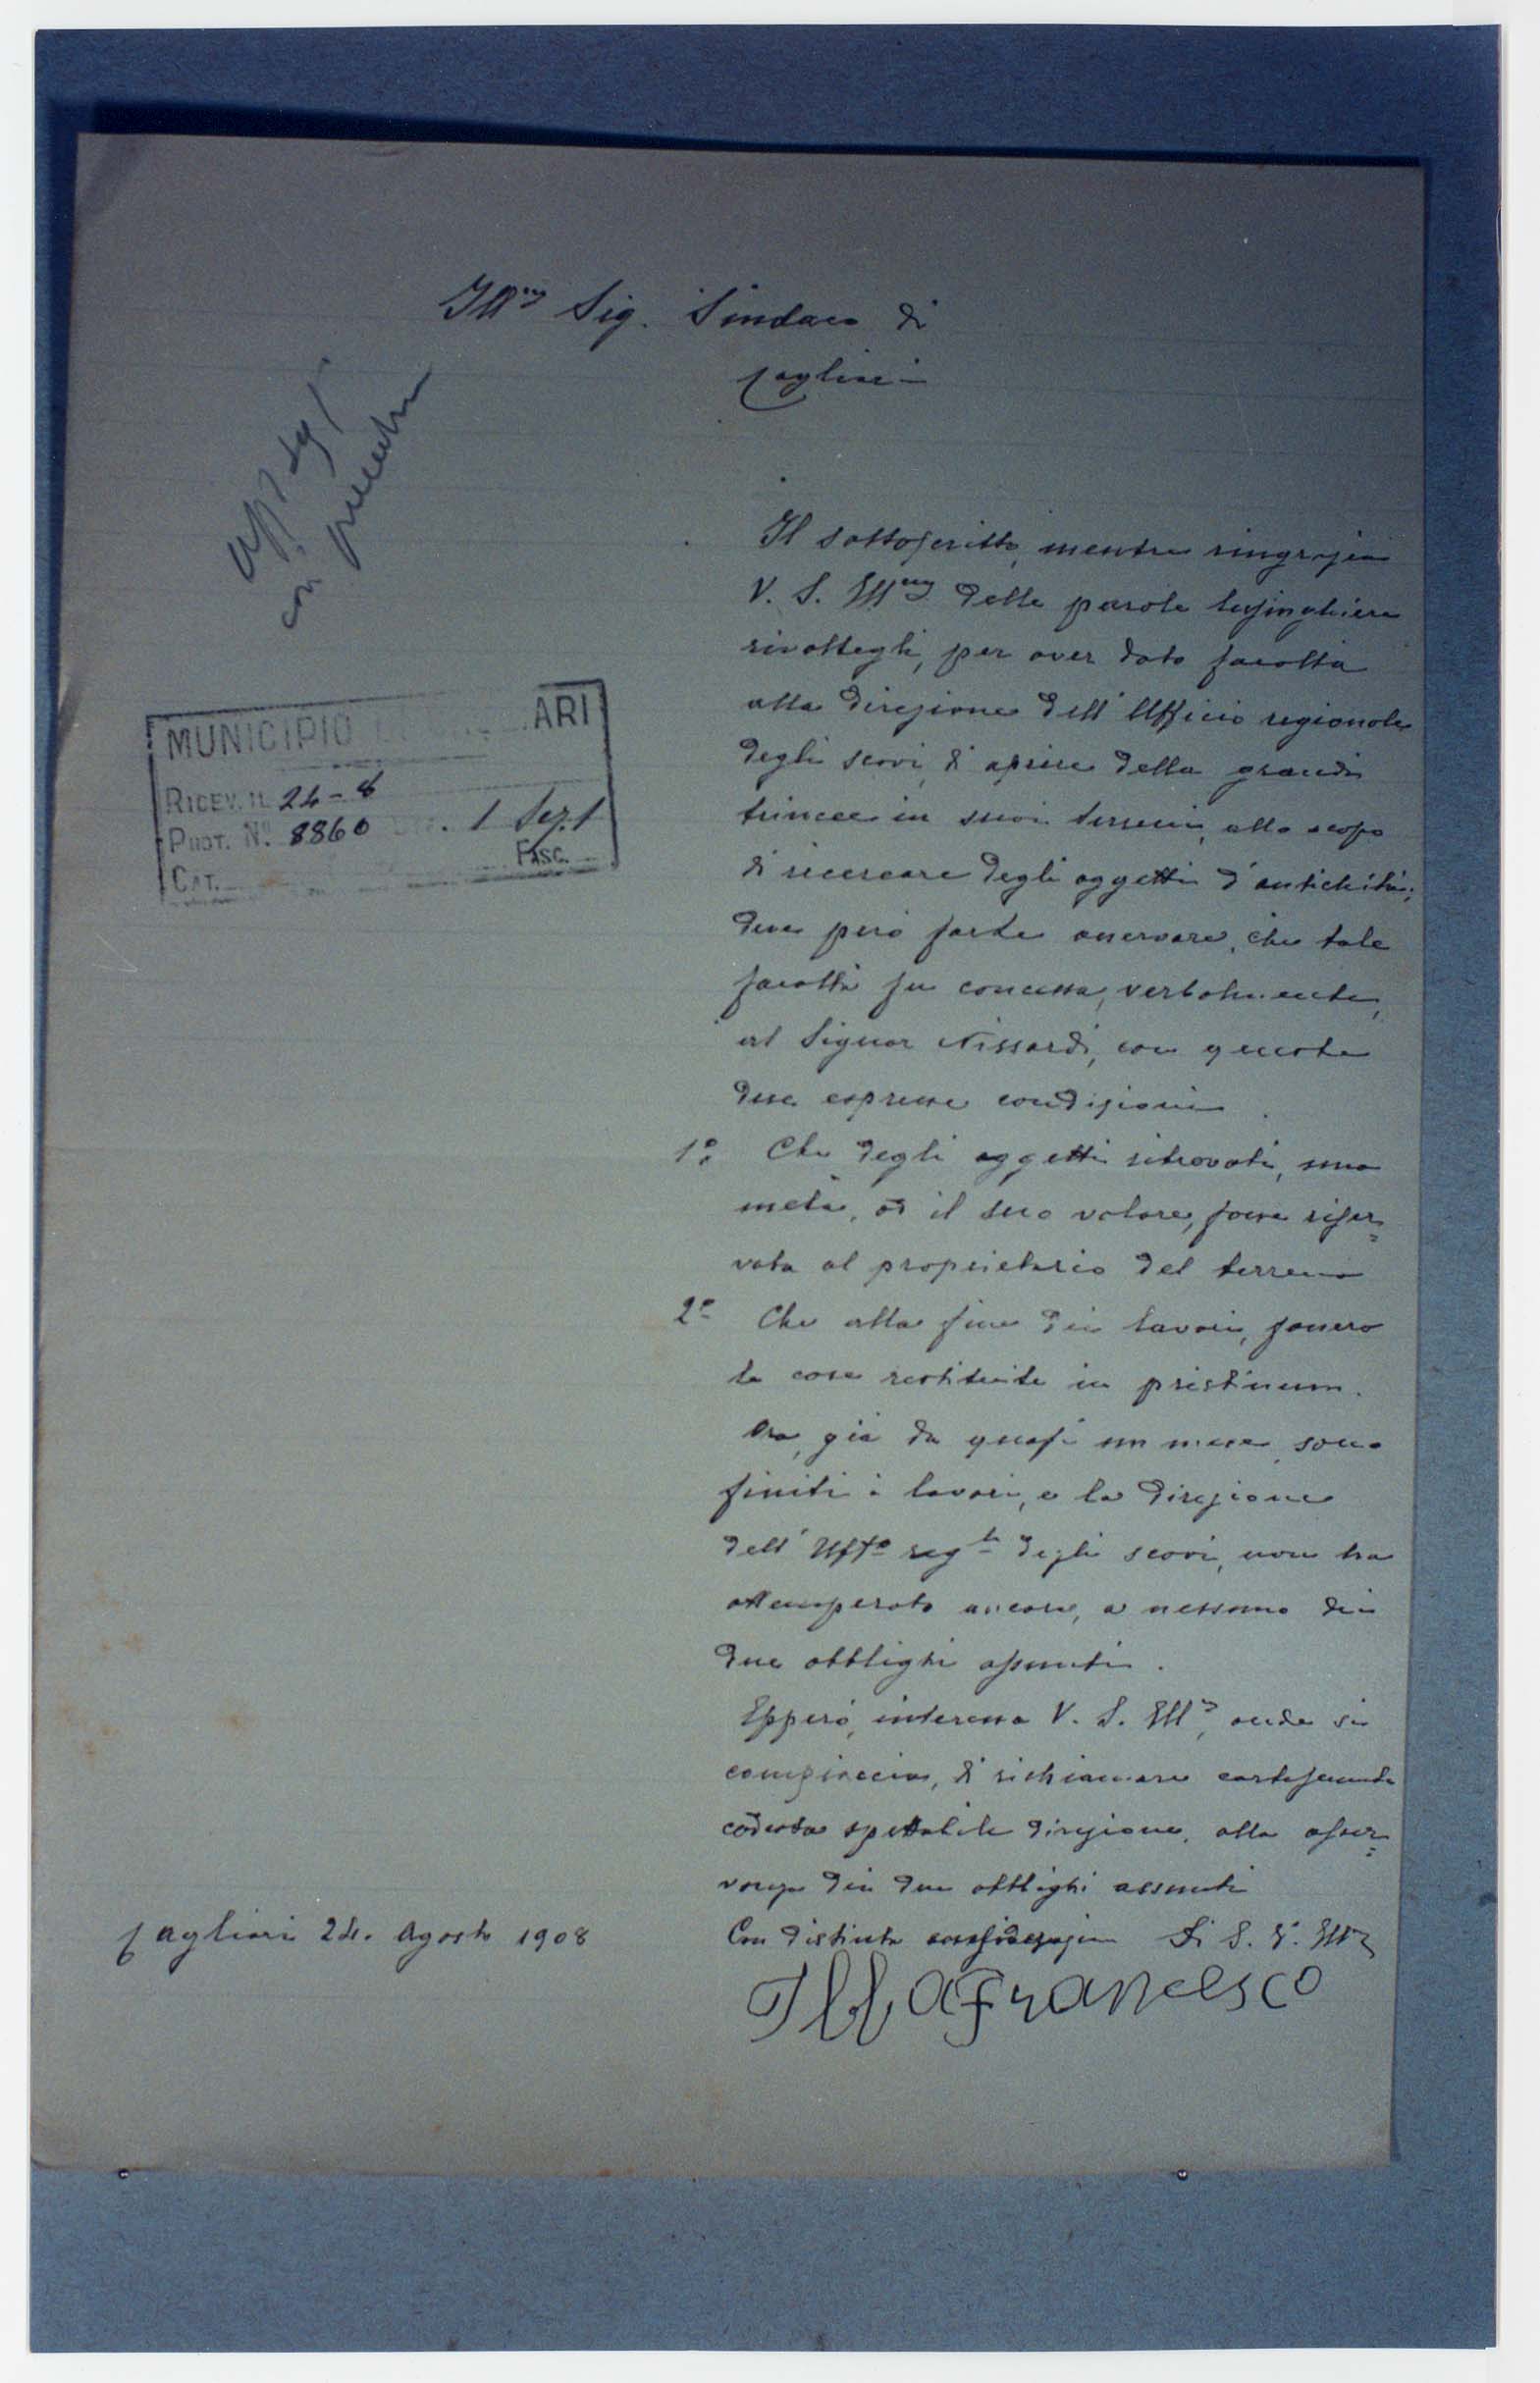 Ill.mo Sig. Sindaco di
Cagliari
con precedenti
MUNICIPIO ARI
RICEV. IL 24-8
PROT. Nº 8860 . 1 Sez. 1
CAT. FASC.
Il sottoscritto, mentre ringrazia
V. S. Ill.ma delle parole lusinghiere
rivoltegli, per aver dato facoltà
alla direzione dell'Ufficio regionale
degli scavi, di aprire delle grandi
trincee in suoi terreni, allo scopo
di ricercare degli oggetti d'antichità;
deve però farle osservare, che tale
facoltà fu concessa, verbalmente,
al Signor Nissardi, con queste
due espresse condizioni
1º. Che degli oggetti ritrovati, una
metà, od il suo valore, fosse riser=
vata al proprietario del terreno
2º Che alla fine dei lavori, fossero
le cose restituite in pristinum.
Ora, già da quasi un mese, sono
finiti i lavori, e la direzione
dell'Uffº regle degli scavi, non ha
ottemperato ancora, a nessuno dei
due obblighi assunti.
Epperò, interessa V. S. Ill.ma, onde si
compiaccia, di richiamare cortesemente
codesta spettabile direzione, alla osser=
vanza dei due obblighi assunti
Con distinta considerazione Di S. V. Ill.ma
Cagliari 24. Agosto 1908
Francesco